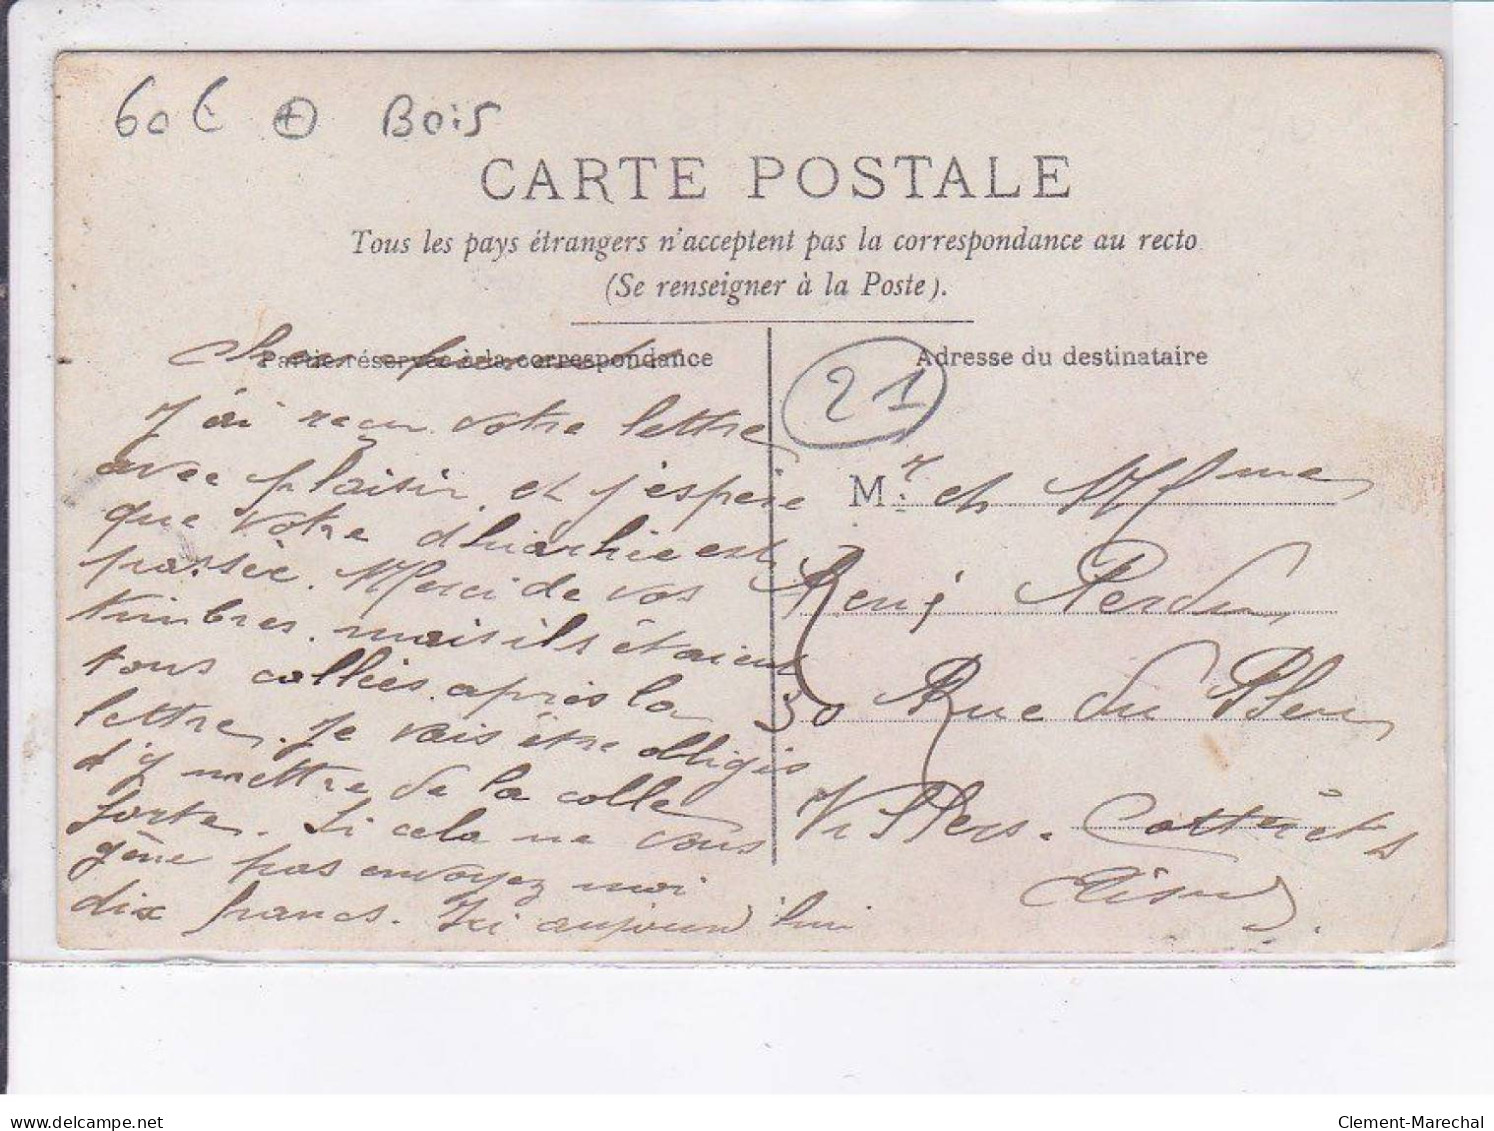 60 € + Bois
CARTE POSTALE
Tous les pays étrangers n'acceptent pas la correspondance au recto
(Se renseigner à la Poste).
Partie réservée à la correspondance
Chers parents
J'ai reçu votre lettre
avec plaisir et j'espère
que votre dhiarhée est
passée. Merci de vos
timbres. mais ils étaient
tous collées après la
lettre. Je vais être obligés
d'y mettre de la colle
forte. Si cela ne vous
gêne pas envoyez moi
dix francs. Ici aujourd'hui
21
Adresse du destinataire
M.r et Mme
René Perdu
30 Rue du Pleu
Villers-Cotterêts
Aisne.
delcampe.net
Clement-Marechal